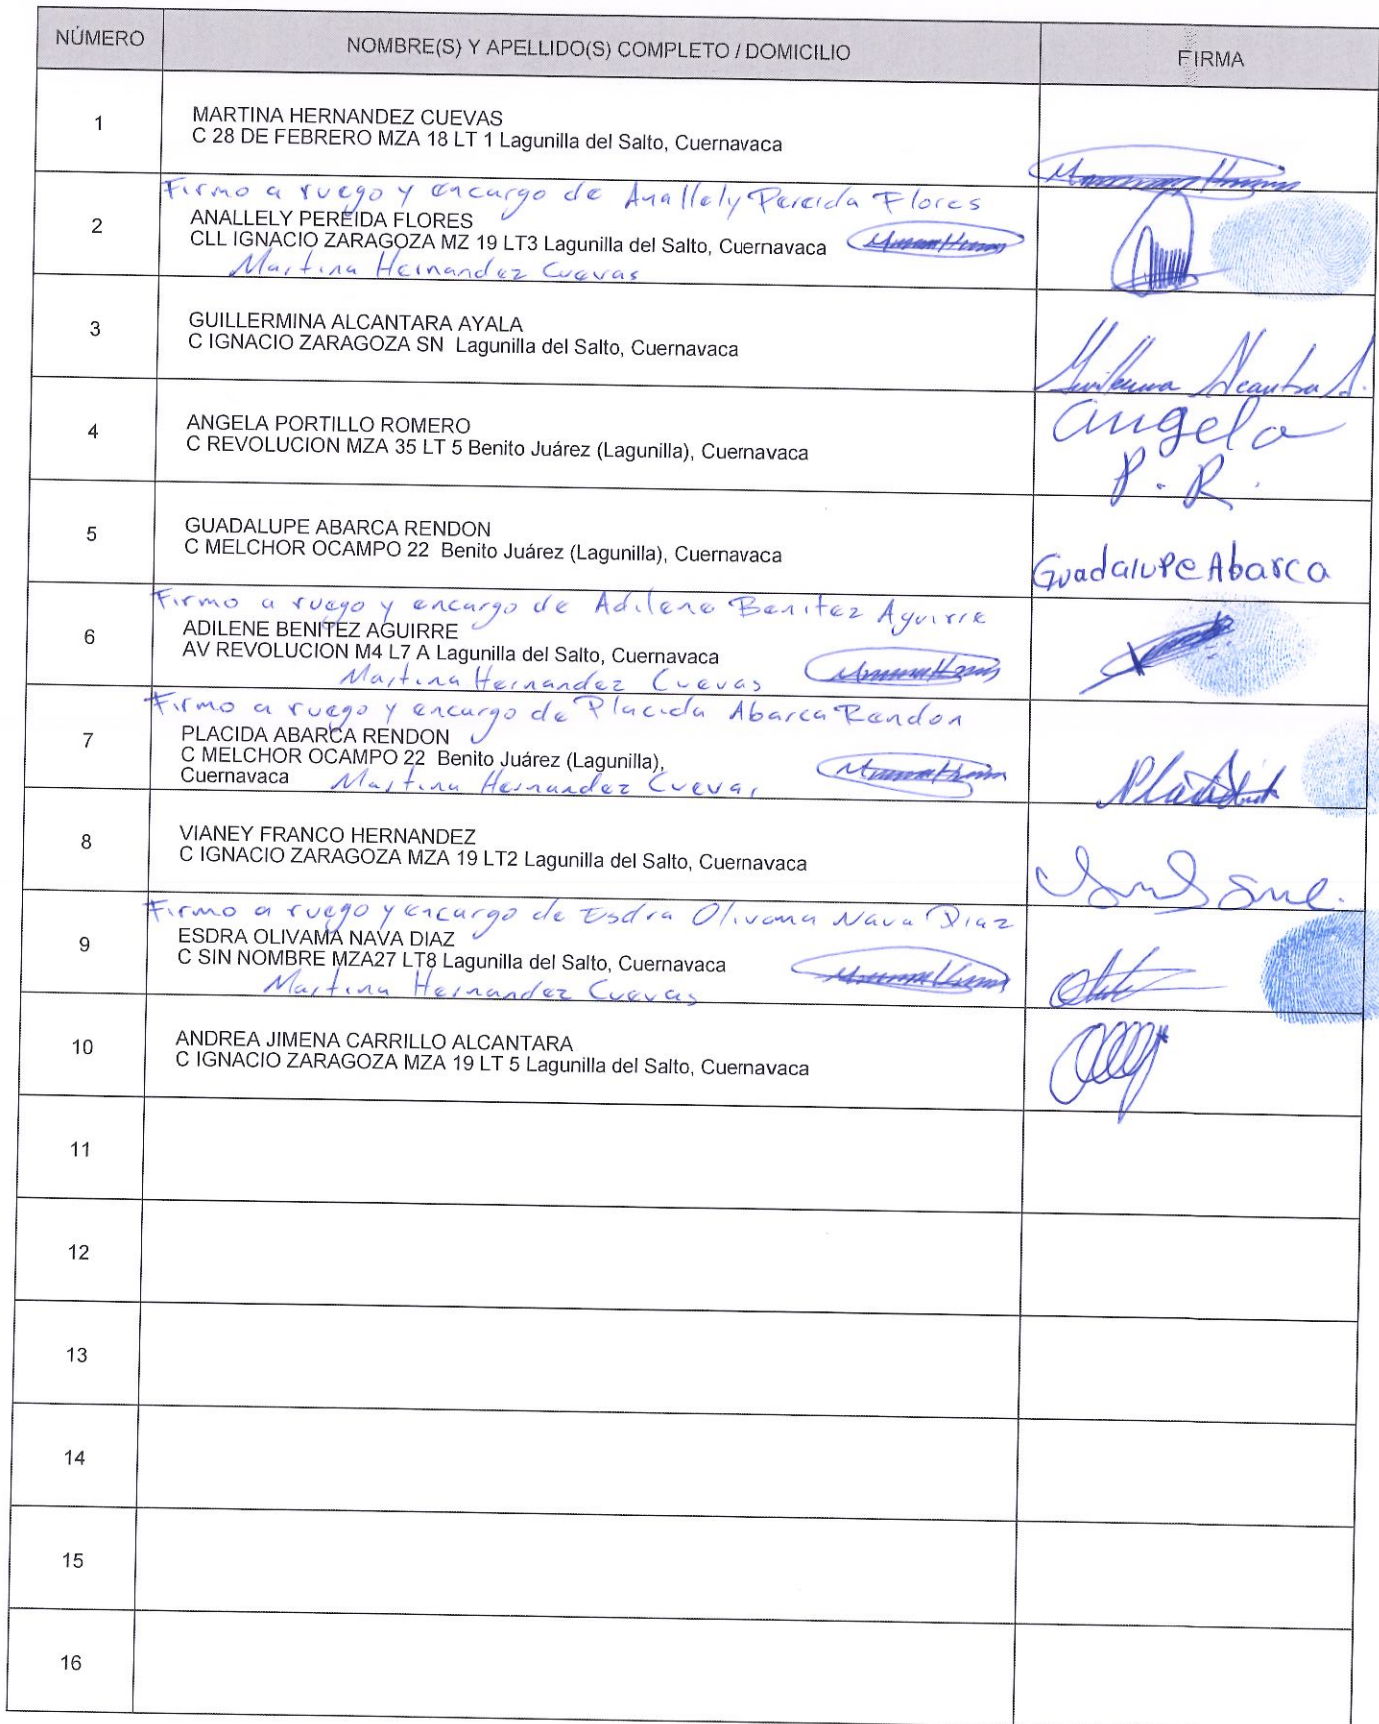 NÚMERO NOMBRE(S) Y APELLIDO(S) COMPLETO / DOMICILIO FIRMA
1 MARTINA HERNANDEZ CUEVAS
C 28 DE FEBRERO MZA 18 LT 1 Lagunilla del Salto, Cuernavaca
Firmo a ruego y encargo de Anallely Pereida Flores
2 ANALLELY PEREIDA FLORES
CLL IGNACIO ZARAGOZA MZ 19 LT3 Lagunilla del Salto, Cuernavaca
Martina Hernandez Cuevas
3 GUILLERMINA ALCANTARA AYALA
C IGNACIO ZARAGOZA SN Lagunilla del Salto, Cuernavaca
4 ANGELA PORTILLO ROMERO
C REVOLUCION MZA 35 LT 5 Benito Juárez (Lagunilla), Cuernavaca
angela
P. R.
5 GUADALUPE ABARCA RENDON
C MELCHOR OCAMPO 22 Benito Juárez (Lagunilla), Cuernavaca
Guadalupe Abarca
Firmo a ruego y encargo de Adilene Benitez Aguirre
6 ADILENE BENITEZ AGUIRRE
AV REVOLUCION M4 L7 A Lagunilla del Salto, Cuernavaca
Martina Hernandez Cuevas
Firmo a ruego y encargo de Placida Abarca Rendon
7 PLACIDA ABARCA RENDON
C MELCHOR OCAMPO 22 Benito Juárez (Lagunilla),
Cuernavaca Martina Hernandez Cuevas
8 VIANEY FRANCO HERNANDEZ
C IGNACIO ZARAGOZA MZA 19 LT2 Lagunilla del Salto, Cuernavaca
Firmo a ruego y encargo de Esdra Olivama Nava Diaz
9 ESDRA OLIVAMA NAVA DIAZ
C SIN NOMBRE MZA27 LT8 Lagunilla del Salto, Cuernavaca
Martina Hernandez Cuevas
10 ANDREA JIMENA CARRILLO ALCANTARA
C IGNACIO ZARAGOZA MZA 19 LT 5 Lagunilla del Salto, Cuernavaca
11
12
13
14
15
16